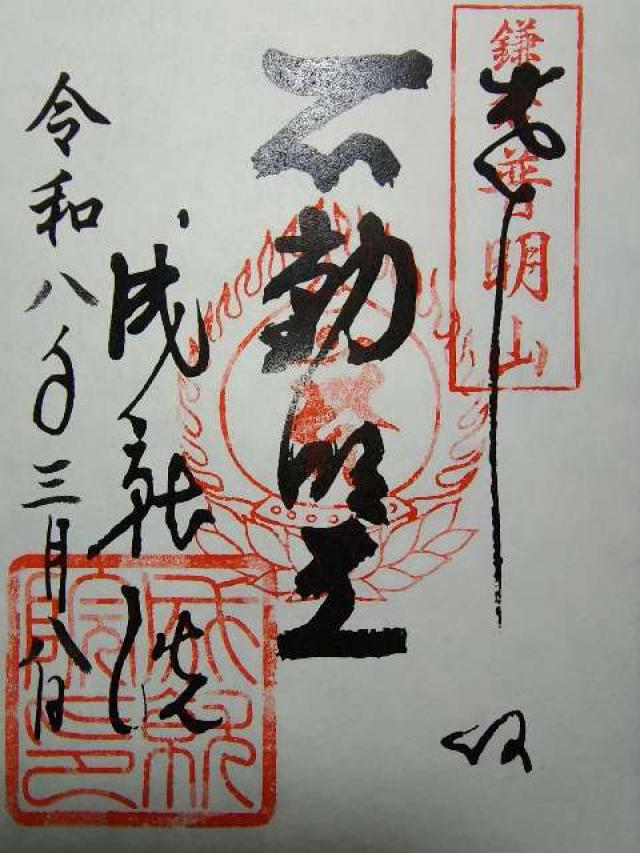 鎌倉普明山
奉拝
不動明王
成就院
令和八年三月八日
成就院印